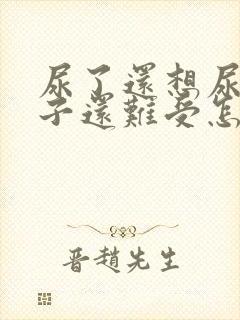 尿了還想尿
子還難受怎
晋趙先生